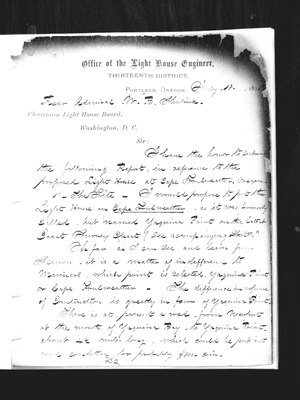 Office of the Light House Engineer,
THIRTEENTH DISTRICT,
PORTLAND, OREGON,
Rear Admiral W. B. Shubrick
Chairman Light House Board,
Washington, D. C.
Sir:
I have the honor to submit
the following Report, in reference to the
proposed Light House at Cape Foulweather, Oregon
1st The Site - I would propose to put the
Light House on Cape Foulweather, as it was formerly
called, but named Yaquina Point on the latest
Coast Survey Chart (See accompanying Sketch.)
So far as I can see and learn from
it is a matter of indifference to
Mariners, which point is selected, Yaquina Point
or Cape Foulweather - The difference in expense
of Construction is greatly in favor of Yaquina Point.
There is at present a road, from Newport
at the mouth of Yaquina Bay, to Yaquina Point,
about 4½ miles long, which could be put in
good condition for probably